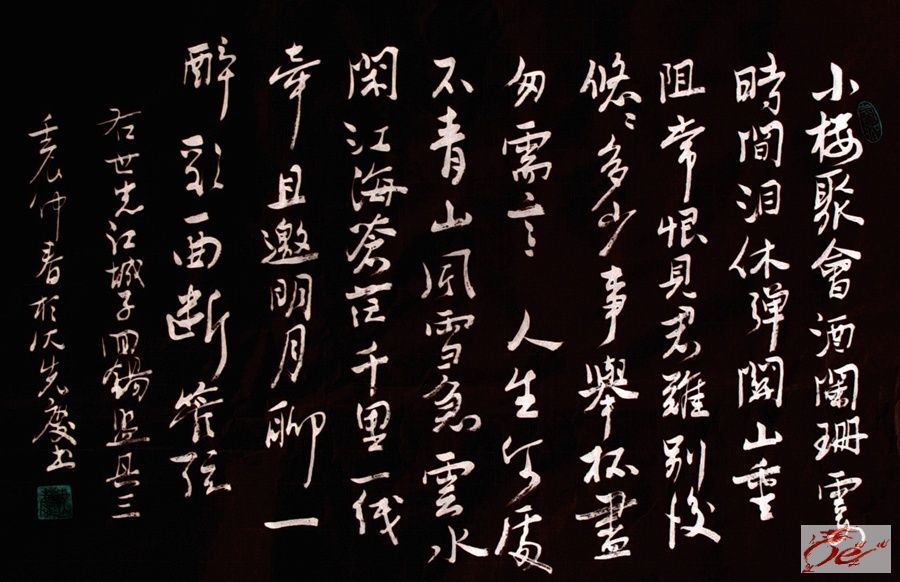 小楼聚會酒闌珊
時間泪休弹關山重
阻常恨見君難別後
悠々多少事舉杯盡
勿需言 人生何處
不青山風雪急雲水
閑江海蒼茫千里一线
牵且邀明月聊一
醉歌曲断管弦
右世先江城子回錫盟其三
壬辰仲春於先慶书